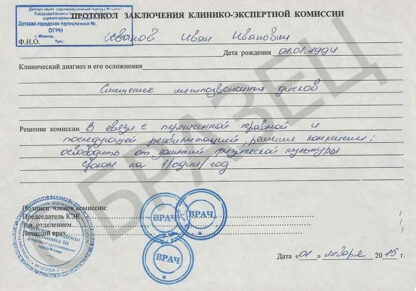 ПРОТОКОЛ ЗАКЛЮЧЕНИЯ КЛИНИКО-ЭКСПЕРТНОЙ КОМИССИИ
Детская городская поликлиника №
ОГРН
г. Москва, Тел.:
Ф.И.О. Иванов Иван Иванович
Дата рождения 01.01.1994
Клинический диагноз и его осложнения
Смещение межпозвоночных дисков
Решение комиссии В связи с перенесенной травмой и
последующей реабилитацией решили комиссии:
освободить от занятий физической культуры
сроком на 1 /один/ год
Подписи членов комиссии:
Председатель КЭК
Зав. отделением
Лечащий врач
ВРАЧ
ВРАЧ
ВРАЧ
Дата «01» января 2015 г.
ОБРАЗЕЦ